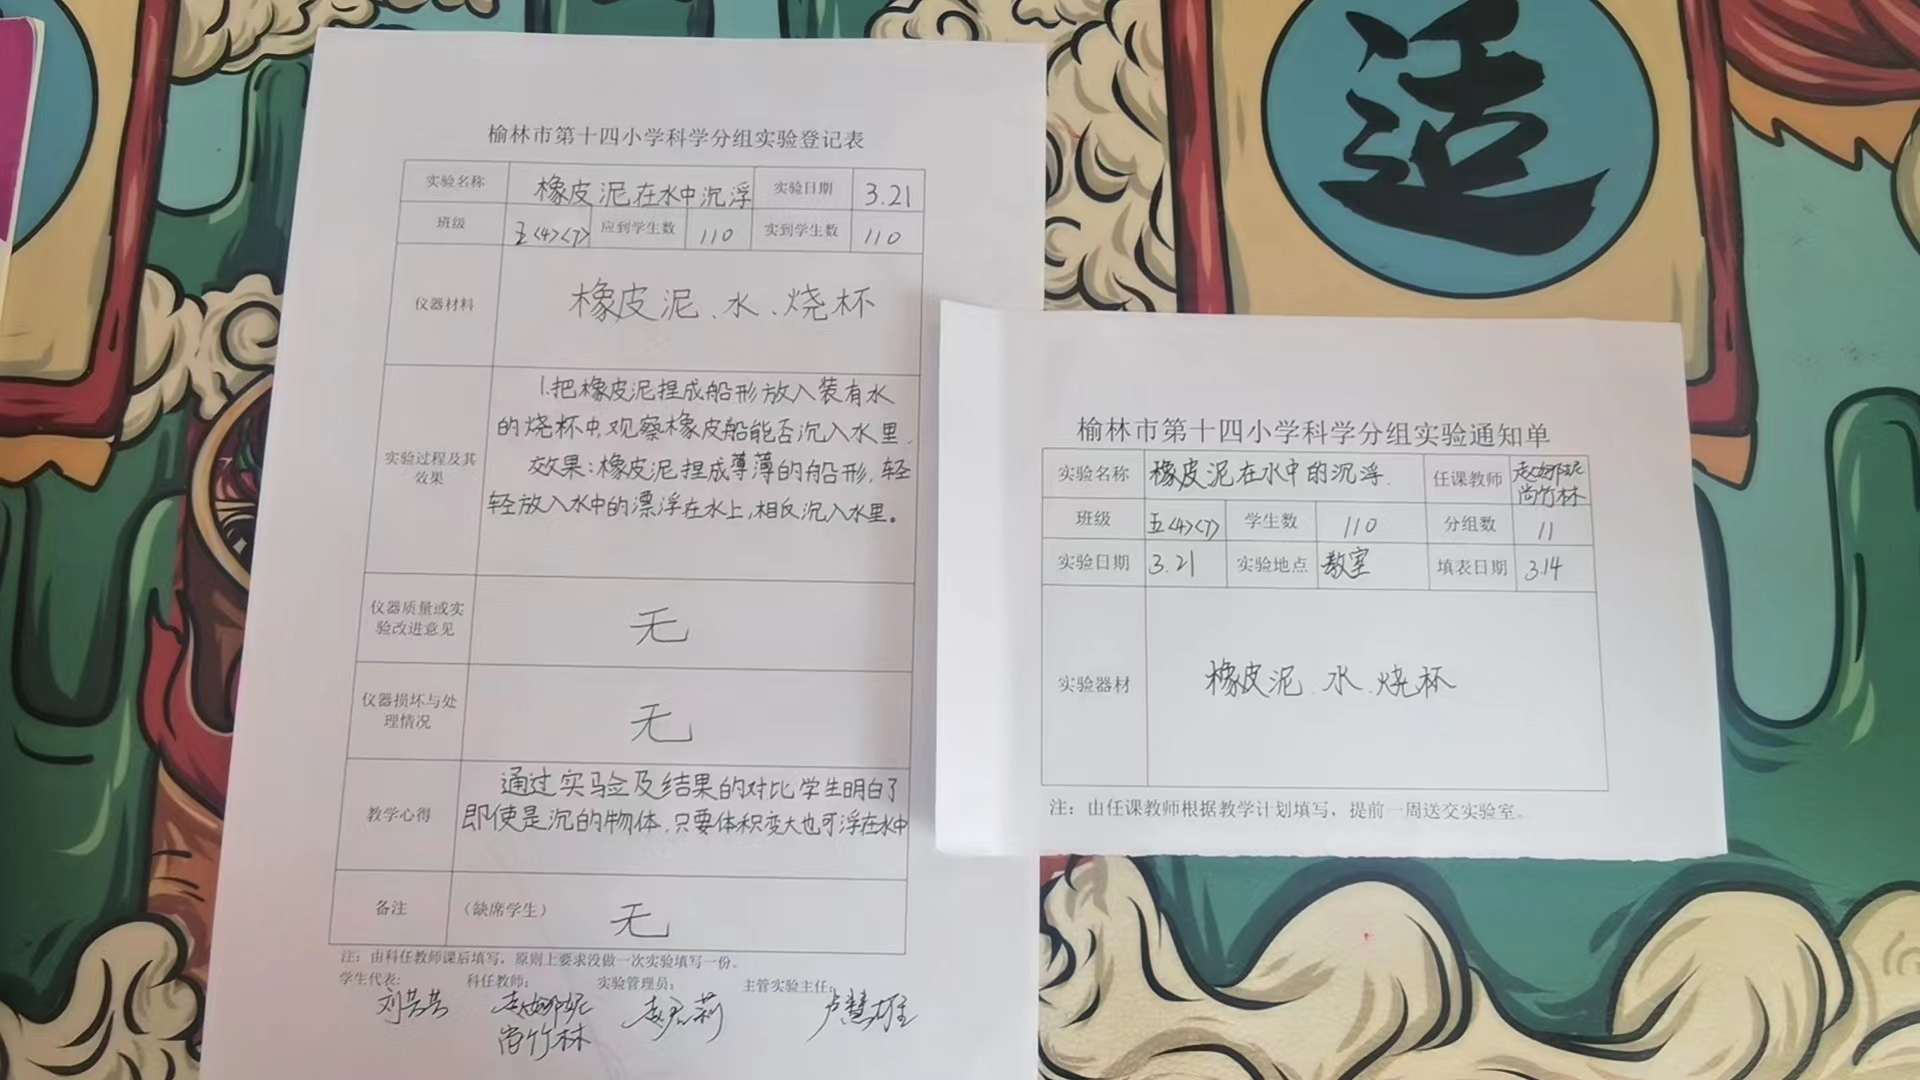 榆林市第十四小学科学分组实验登记表
实验名称 橡皮泥在水中沉浮 实验日期 3.21
班级 五<4><7> 应到学生数 110 实到学生数 110
仪器材料 橡皮泥、水、烧杯
实验过程及其
效果
1.把橡皮泥捏成船形放入装有水
的烧杯中,观察橡皮船能否沉入水里.
效果:橡皮泥捏成薄薄的船形,轻
轻放入水中的漂浮在水上,相反沉入水里。
仪器质量或实
验改进意见
无
仪器损坏与处
理情况
无
教学心得
通过实验及结果的对比学生明白了
即使是沉的物体,只要体积变大也可浮在水中
备注 (缺席学生) 无
注:由科任教师课后填写,原则上要求没做一次实验填写一份。
学生代表: 科任教师: 实验管理员: 主管实验主任:
刘芸芸
尚竹林
卢慧雄
榆林市第十四小学科学分组实验通知单
实验名称 橡皮泥在水中的沉浮. 任课教师 赵娜妮
尚竹林
班级 五<4><7> 学生数 110 分组数 11
实验日期 3.21 实验地点 教室 填表日期 3.14
实验器材 橡皮泥、水、烧杯
注:由任课教师根据教学计划填写,提前一周送交实验室。
适